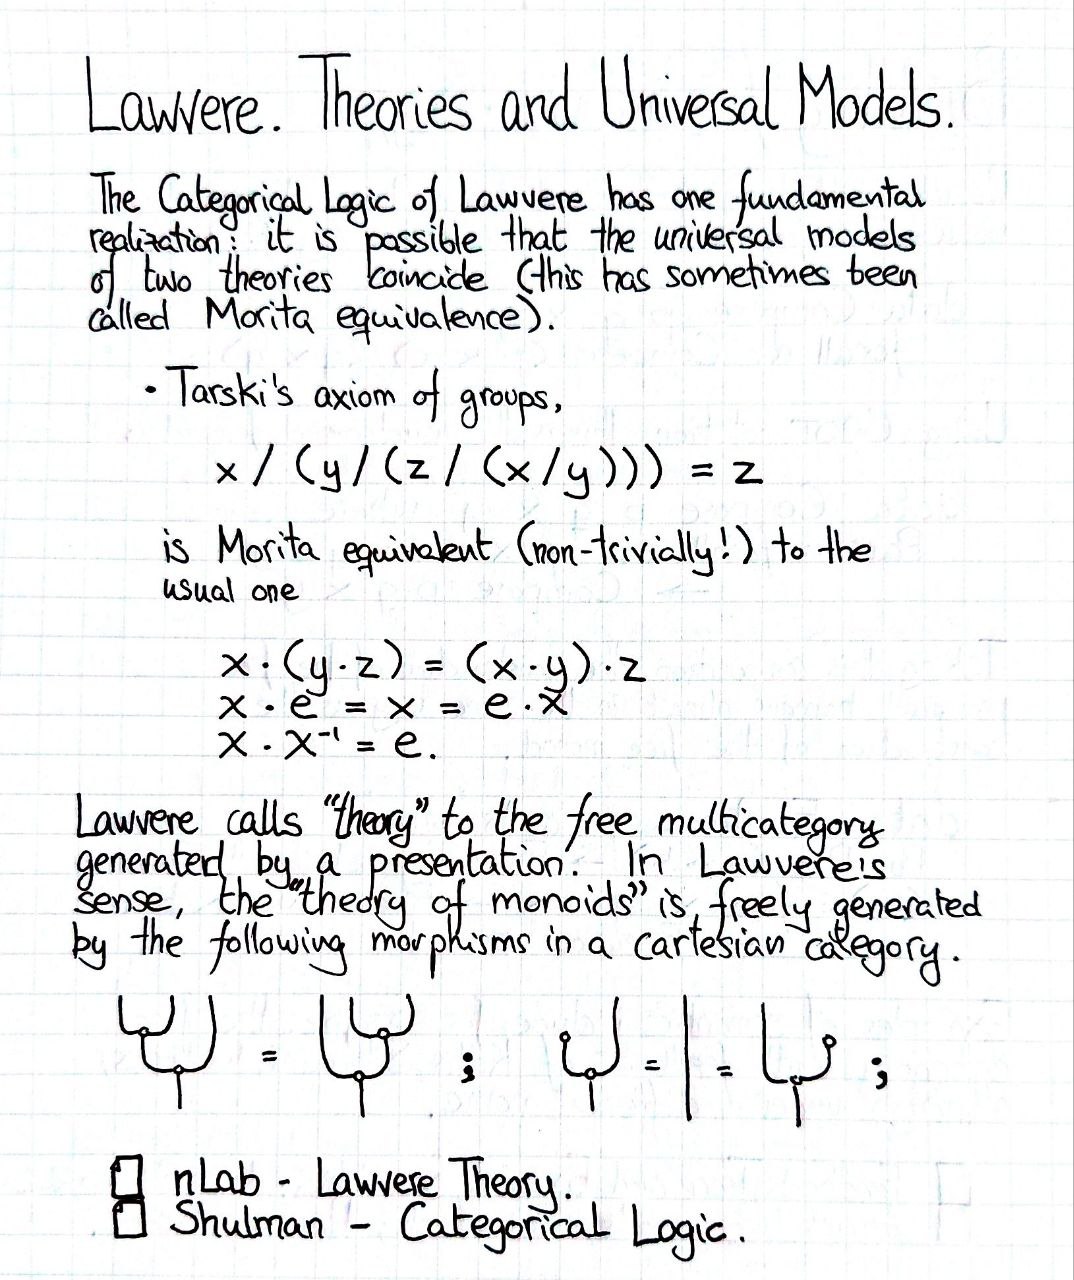 Lawvere. Theories and Universal Models.
The Categorical Logic of Lawvere has one fundamental
realization: it is possible that the universal models
of two theories coincide (this has sometimes been
called Morita equivalence).
• Tarski's axiom of groups,
x / (y / (z / (x/y))) = z
is Morita equivalent (non-trivially!) to the
usual one
x · (y · z) = (x · y) · z
x · e = x = e · x
x · x⁻¹ = e.
Lawvere calls "theory" to the free multicategory
generated by a presentation. In Lawvere's
sense, the "theory of monoids" is freely generated
by the following morphisms in a cartesian category.
= ; = | = ;
nLab - Lawvere Theory.
Shulman - Categorical Logic.